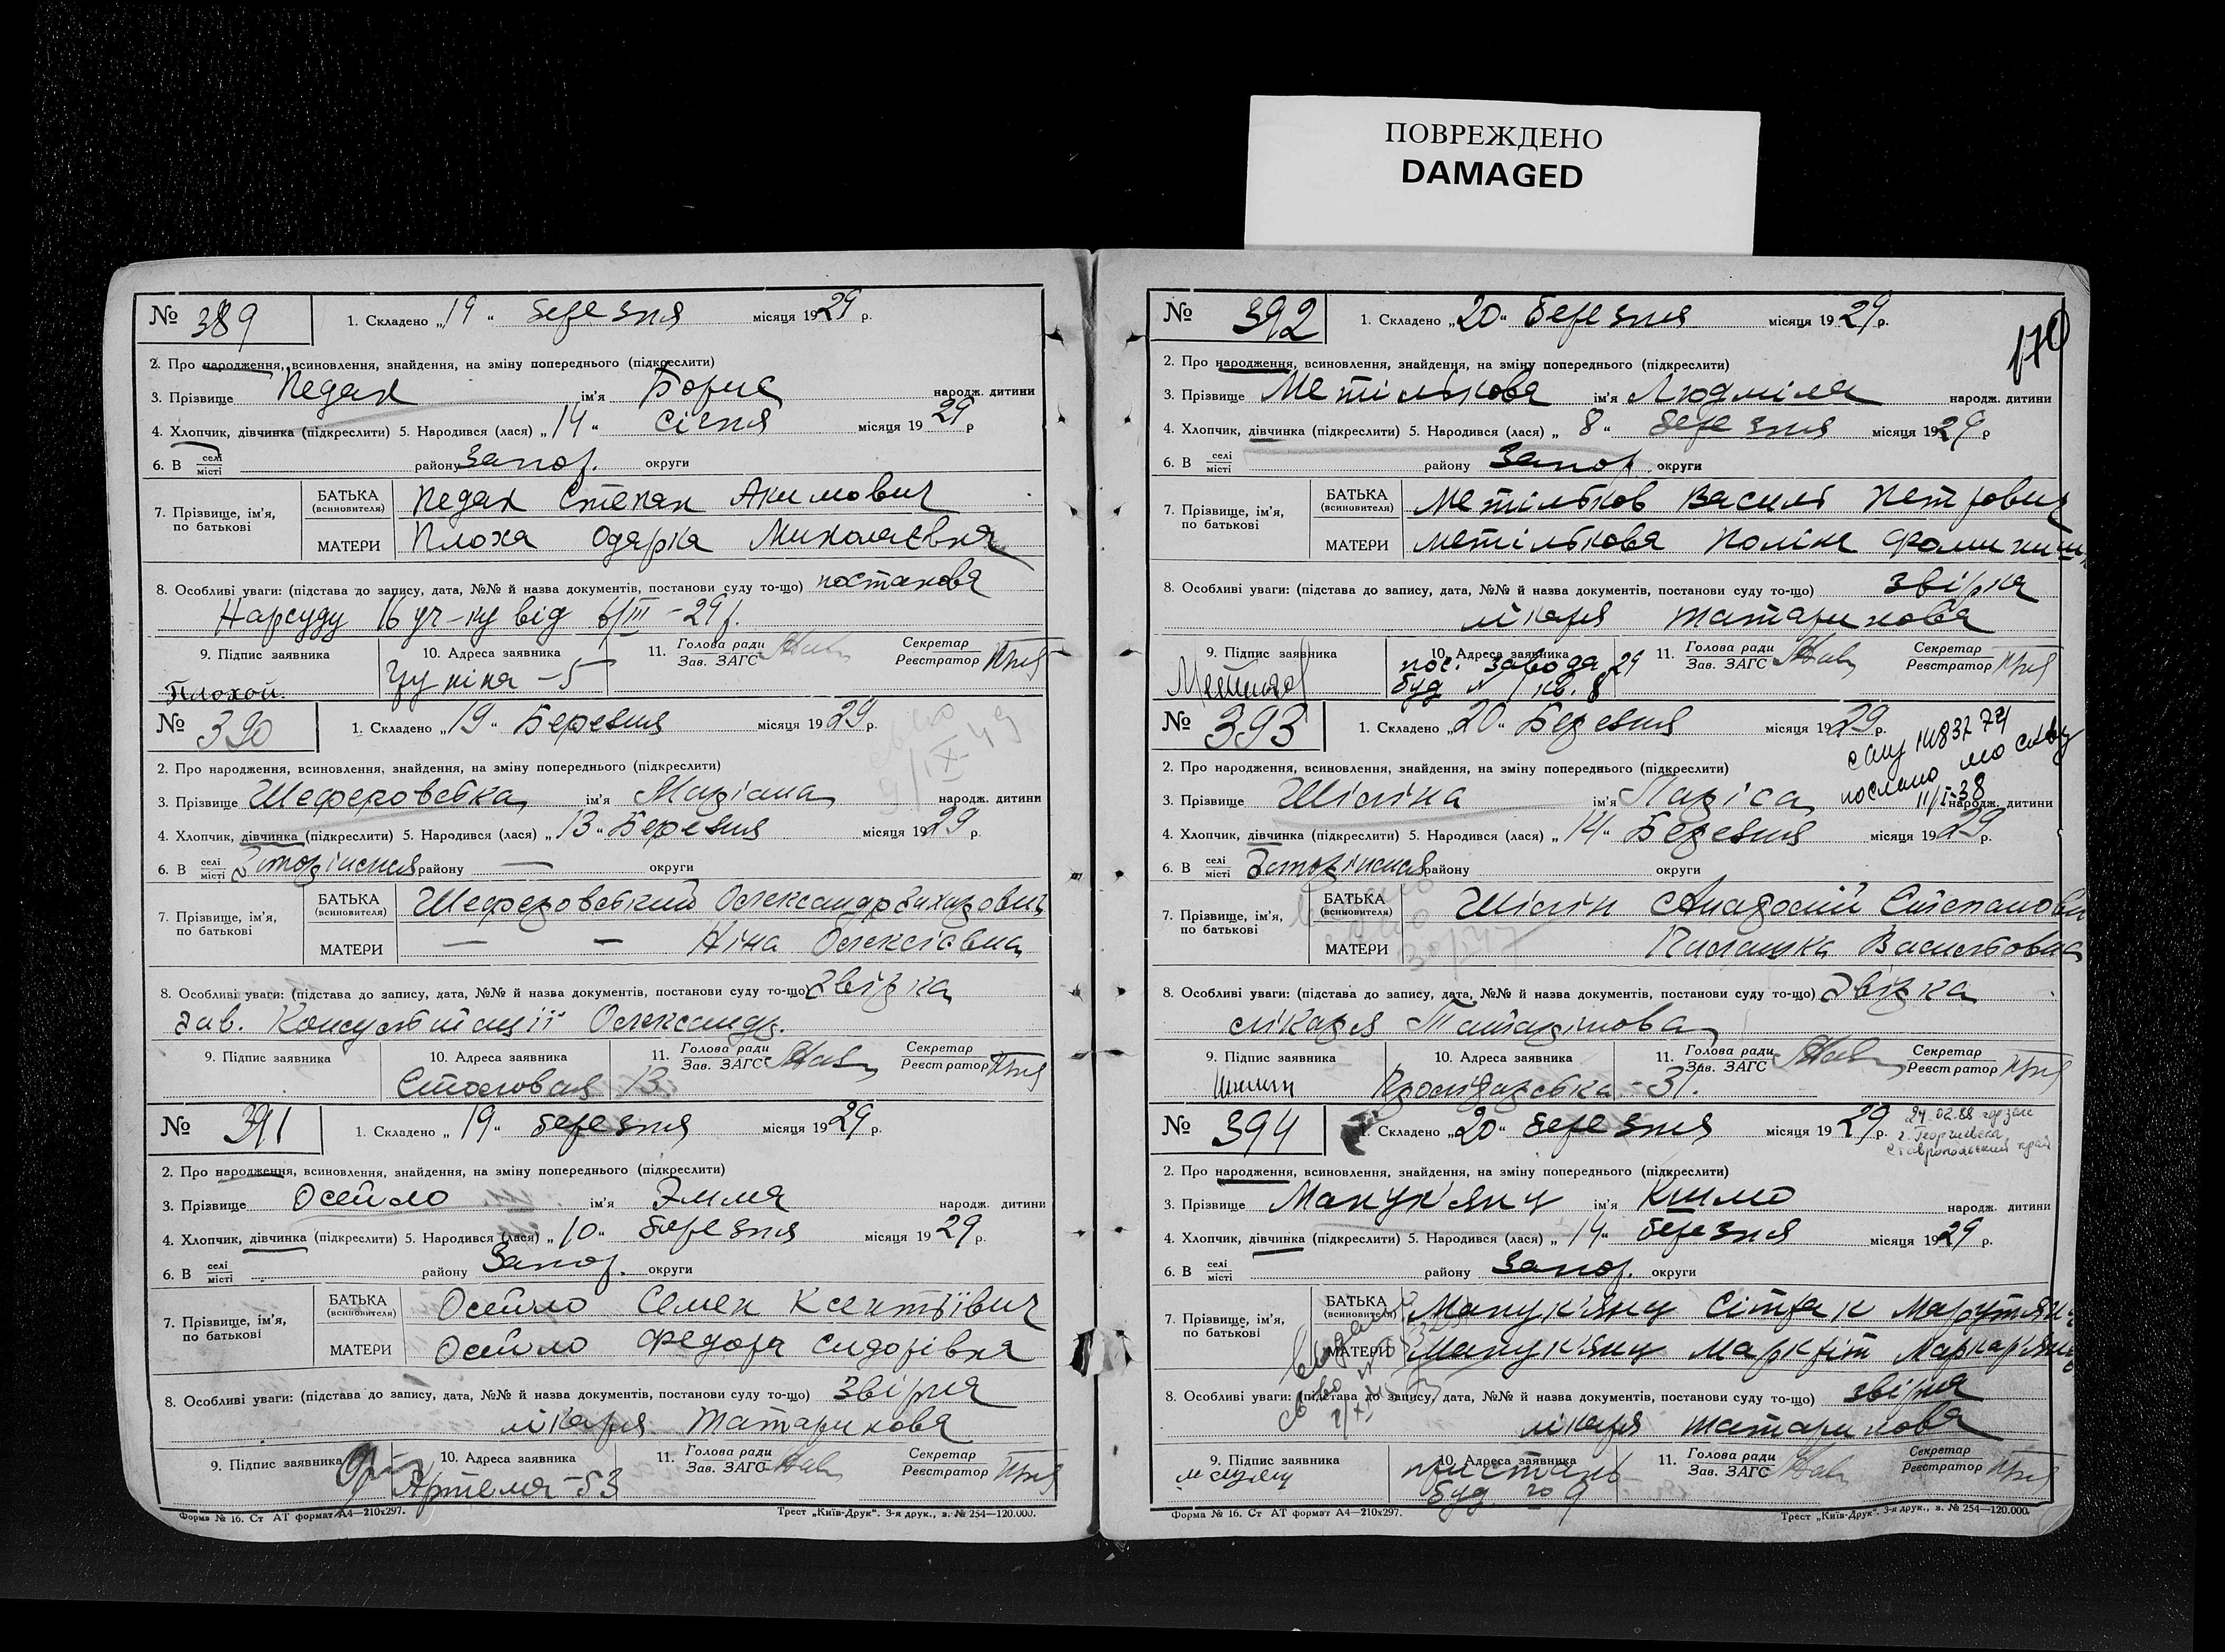 ПОВРЕЖДЕНО
DAMAGED
№ 389 1. Складено „19“ березня місяця 1929 р.
2. Про народження, всиновлення, знайдення, на зміну попереднього (підкреслити)
3. Прізвище Педах ім'я Борис народж. дитини
4. Хлопчик, дівчинка (підкреслити) 5. Народився (лася) „14“ січня місяця 1929 р
6. В селі місті району Запор. округи
7. Прізвище, ім'я, по батькові БАТЬКА (всиновителя) Педах Степан Якимович
МАТЕРИ Плоха Одарка Миколаєвна
8. Особливі уваги: (підстава до запису, дата, №№ й назва документів, постанови суду то-що) постанова
Нарсуду 16 уч-ку від 6/III-29 р.
9. Підпис заявника 10. Адреса заявника 11. Голова ради Зав. ЗАГС Секретар Реєстратор
Плохой.
№ 390 1. Складено „19“ Березня місяця 1929 р.
2. Про народження, всиновлення, знайдення, на зміну попереднього (підкреслити)
3. Прізвище Шеферовська ім'я Маріана народж. дитини
4. Хлопчик, дівчинка (підкреслити) 5. Народився (лася) „13“ Березня місяця 1929 р.
6. В селі місті Запоріжжя району — округи
7. Прізвище, ім'я, по батькові БАТЬКА (всиновителя) Шеферовський Олександр Захарович
МАТЕРИ — — Ніна Олексієвна
8. Особливі уваги: (підстава до запису, дата, №№ й назва документів, постанови суду то-що) Звірка
зав. Консультації Олександр.
9. Підпис заявника 10. Адреса заявника 11. Голова ради Зав. ЗАГС Секретар Реєстратор
Столовая 13.
№ 391 1. Складено „19“ березня місяця 1929 р.
2. Про народження, всиновлення, знайдення, на зміну попереднього (підкреслити)
3. Прізвище Осейло ім'я Эмма народж. дитини
4. Хлопчик, дівчинка (підкреслити) 5. Народився (лася) „10“ березня місяця 1929 р.
6. В селі місті району Запор. округи
7. Прізвище, ім'я, по батькові БАТЬКА (всиновителя) Осейло Семен Ксентіївич
МАТЕРИ Осейло Федора Сидорівна
8. Особливі уваги: (підстава до запису, дата, №№ й назва документів, постанови суду то-що) звірка
лікаря Татаринова
9. Підпис заявника 10. Адреса заявника 11. Голова ради Зав. ЗАГС Секретар Реєстратор
Артема - 53
Форма № 16. Ст АТ формат А4—210х297. Трест „Київ-Друк“. 3-я друк., з. № 254—120.000.
170
№ 392 1. Складено „20“ березня місяця 1929 р.
2. Про народження, всиновлення, знайдення, на зміну попереднього (підкреслити)
3. Прізвище Метількова ім'я Людміла народж. дитини
4. Хлопчик, дівчинка (підкреслити) 5. Народився (лася) „8“ березня місяця 1929 р
6. В селі місті району Запор. округи
7. Прізвище, ім'я, по батькові БАТЬКА (всиновителя) Метільков Василь Петрович
МАТЕРИ Метількова Поліна
8. Особливі уваги: (підстава до запису, дата, №№ й назва документів, постанови суду то-що) звірка
лікаря Татаринова
9. Підпис заявника 10. Адреса заявника 11. Голова ради Зав. ЗАГС Секретар Реєстратор
пос. завода 29
буд № 1 кв. 8
№ 393 1. Складено „20“ Березня місяця 1929 р.
2. Про народження, всиновлення, знайдення, на зміну попереднього (підкреслити)
послано
11/I-38
3. Прізвище Шіліна ім'я Ларіса народж. дитини
4. Хлопчик, дівчинка (підкреслити) 5. Народився (лася) „14“ Березня місяця 1929 р.
6. В селі місті Запоріжжя району округи
7. Прізвище, ім'я, по батькові БАТЬКА (всиновителя) Шілін
МАТЕРИ Палашка Васильовна
8. Особливі уваги: (підстава до запису, дата, №№ й назва документів, постанови суду то-що) Звірка
лікаря Татарінова
9. Підпис заявника 10. Адреса заявника 11. Голова ради Зав. ЗАГС Секретар Реєстратор
№ 394 1. Складено „20“ березня місяця 1929 р.
г. Георгиевска
Ставропольский край
2. Про народження, всиновлення, знайдення, на зміну попереднього (підкреслити)
3. Прізвище Манук'янц ім'я народж. дитини
4. Хлопчик, дівчинка (підкреслити) 5. Народився (лася) „14“ березня місяця 1929 р.
6. В селі місті району Запор. округи
7. Прізвище, ім'я, по батькові БАТЬКА (всиновителя) Манук'янц Сітрак
МАТЕРИ Манук'янц Маркріт
8. Особливі уваги: (підстава до запису, дата, №№ й назва документів, постанови суду то-що) звірка
лікаря Татаринова
9. Підпис заявника 10. Адреса заявника 11. Голова ради Зав. ЗАГС Секретар Реєстратор
пристань
буд. № 9
Форма № 16. Ст АТ формат А4—210х297. Трест „Київ-Друк“. 3-я друк., з. № 254—120.000.